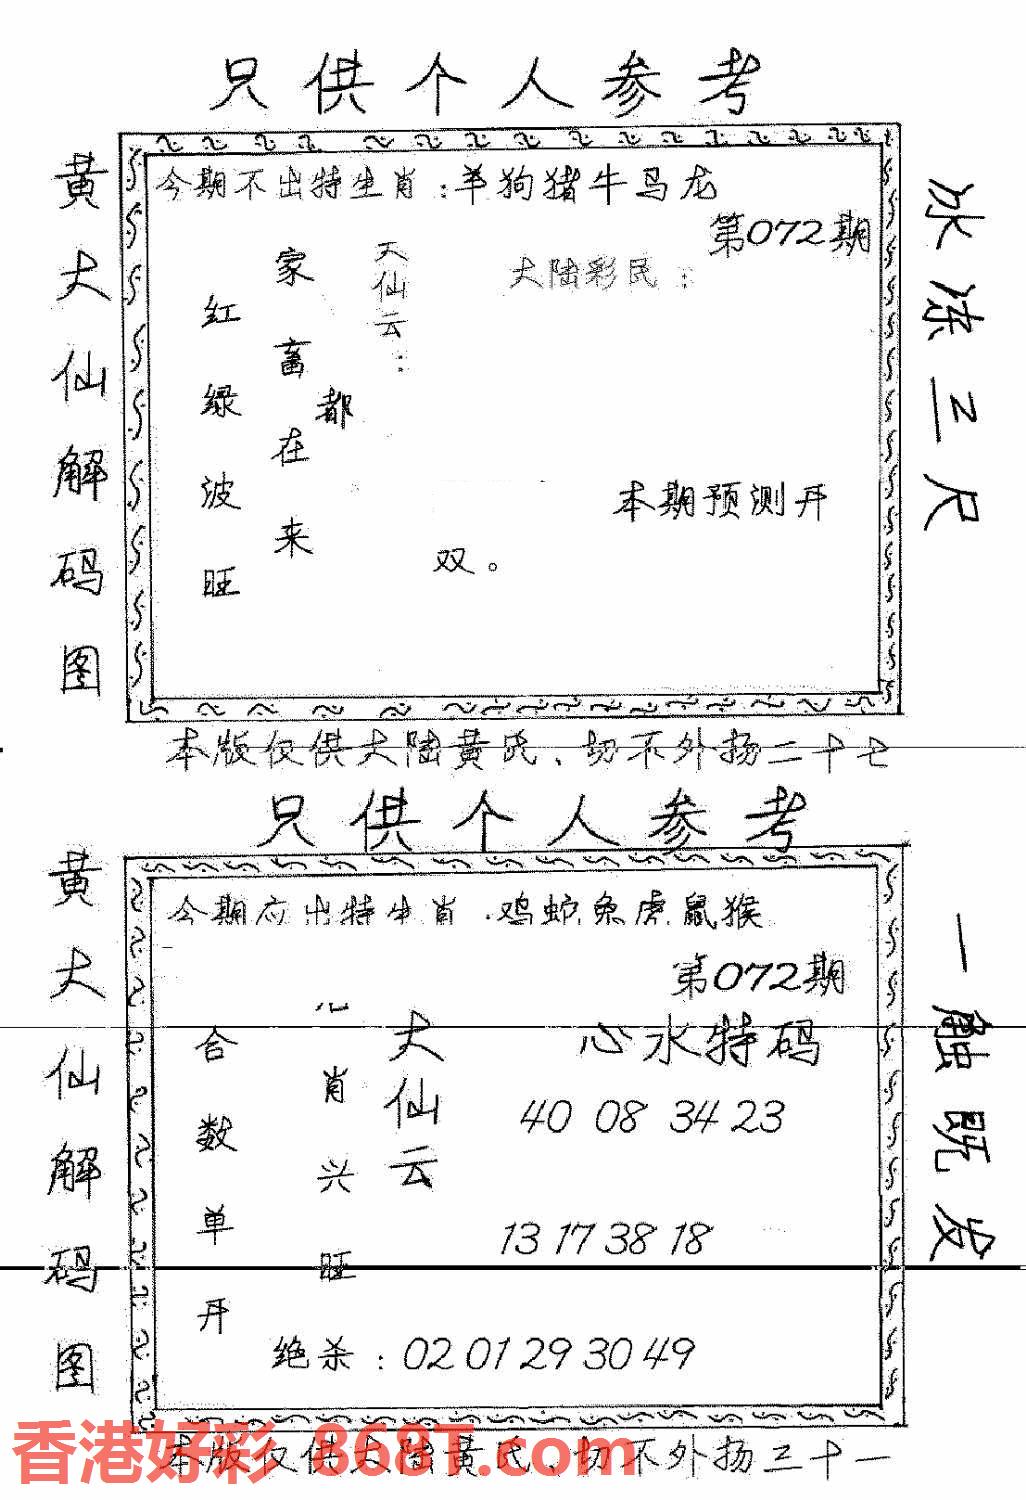 只供个人参考
黄大仙解码图
今期不出特生肖：羊狗猪牛马龙
第072期
大陆彩民：
天仙云：
家畜在来
都
红绿波旺
本期预测开
双。
冰冻三尺
本版仅供大陆黄氏、切不外扬二十七
只供个人参考
黄大仙解码图
今期应出特生肖．鸡蛇兔虎鼠猴
第072期
心水特码
大仙云
肖兴旺
合数单开
40 08 34 23
13 17 38 18
绝杀：02 01 29 30 49
一触既发
本版仅供大陆黄氏、切不外扬三十一
香港好彩.868T.com